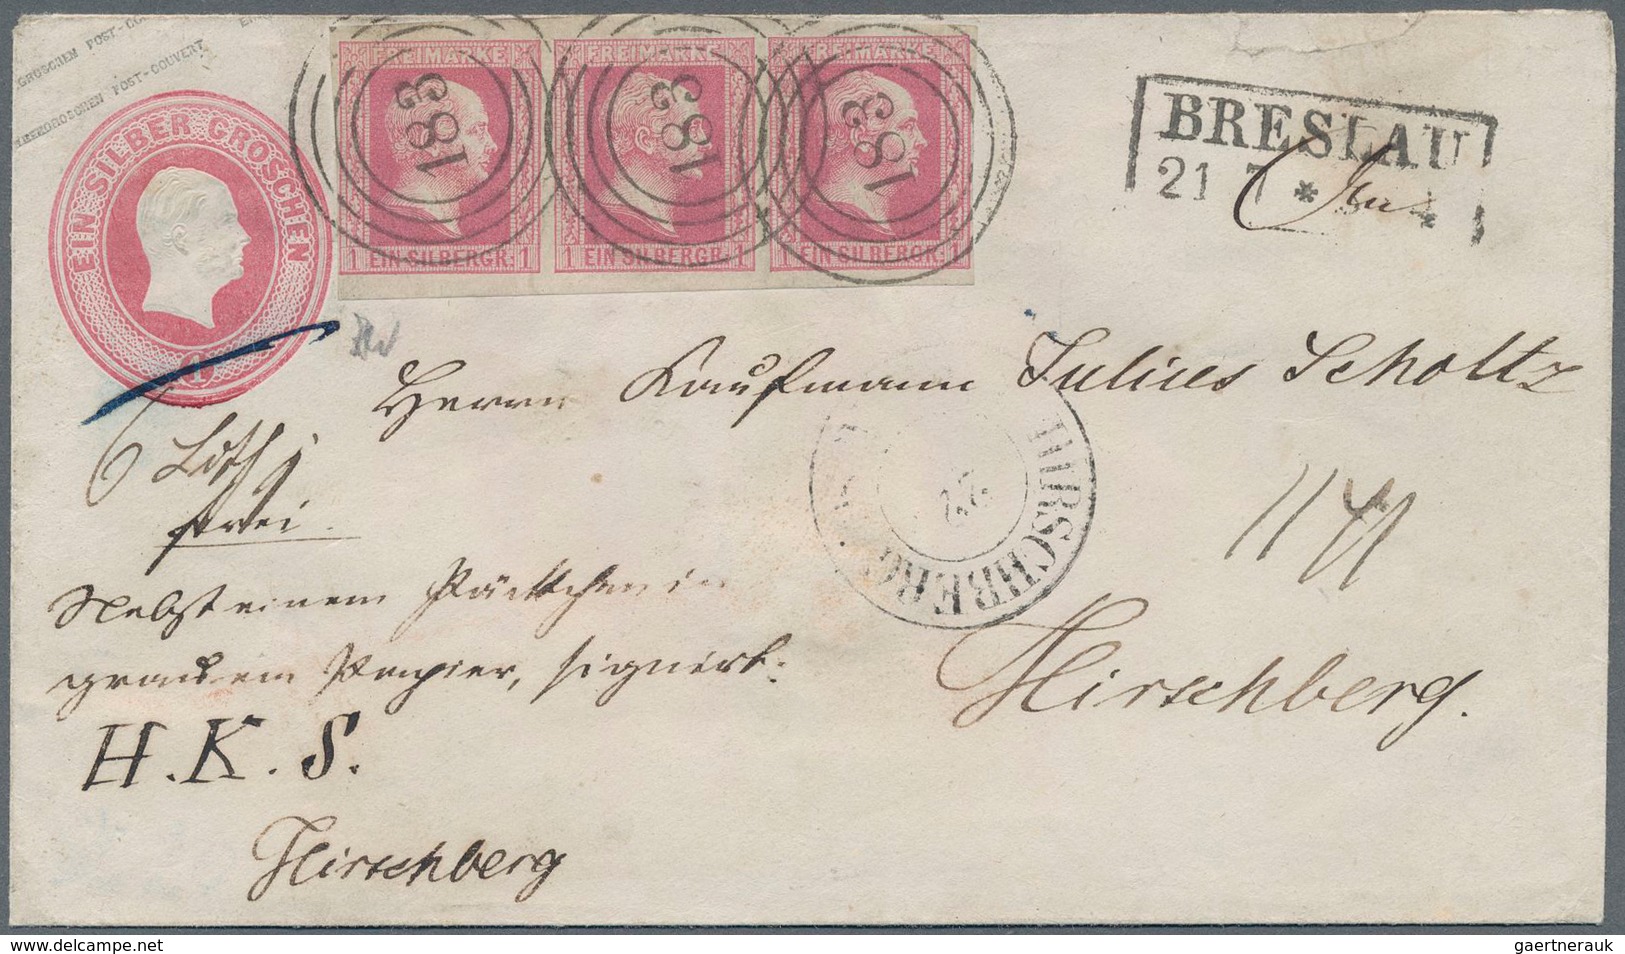 GROSCHEN POST-COUVERT
POST-COUVERT
EIN SILBER GROSCHEN
1
FREIMARKE FREIMARKE FREIMARKE
183 183 183
1 EIN SILBERGR. 1 1 EIN SILBERGR. 1 1 EIN SILBERGR. 1
BRESLAU
21 7 *
Herrn Kaufmann Julius Scholtz
HIRSCHBERG
Loth
frei.
Nebst einem Päcktchen in
grauem Papier, signirt:
H. K. S.
Hirschberg
Hirschberg.
delcampe.net
gaertnerauk